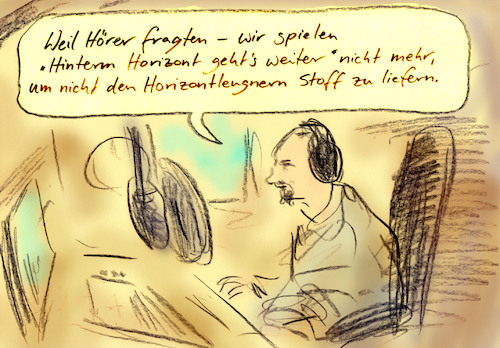 Weil Hörer fragten – wir spielen
"Hinterm Horizont geht's weiter" nicht mehr,
um nicht den Horizontleugnern Stoff zu liefern.